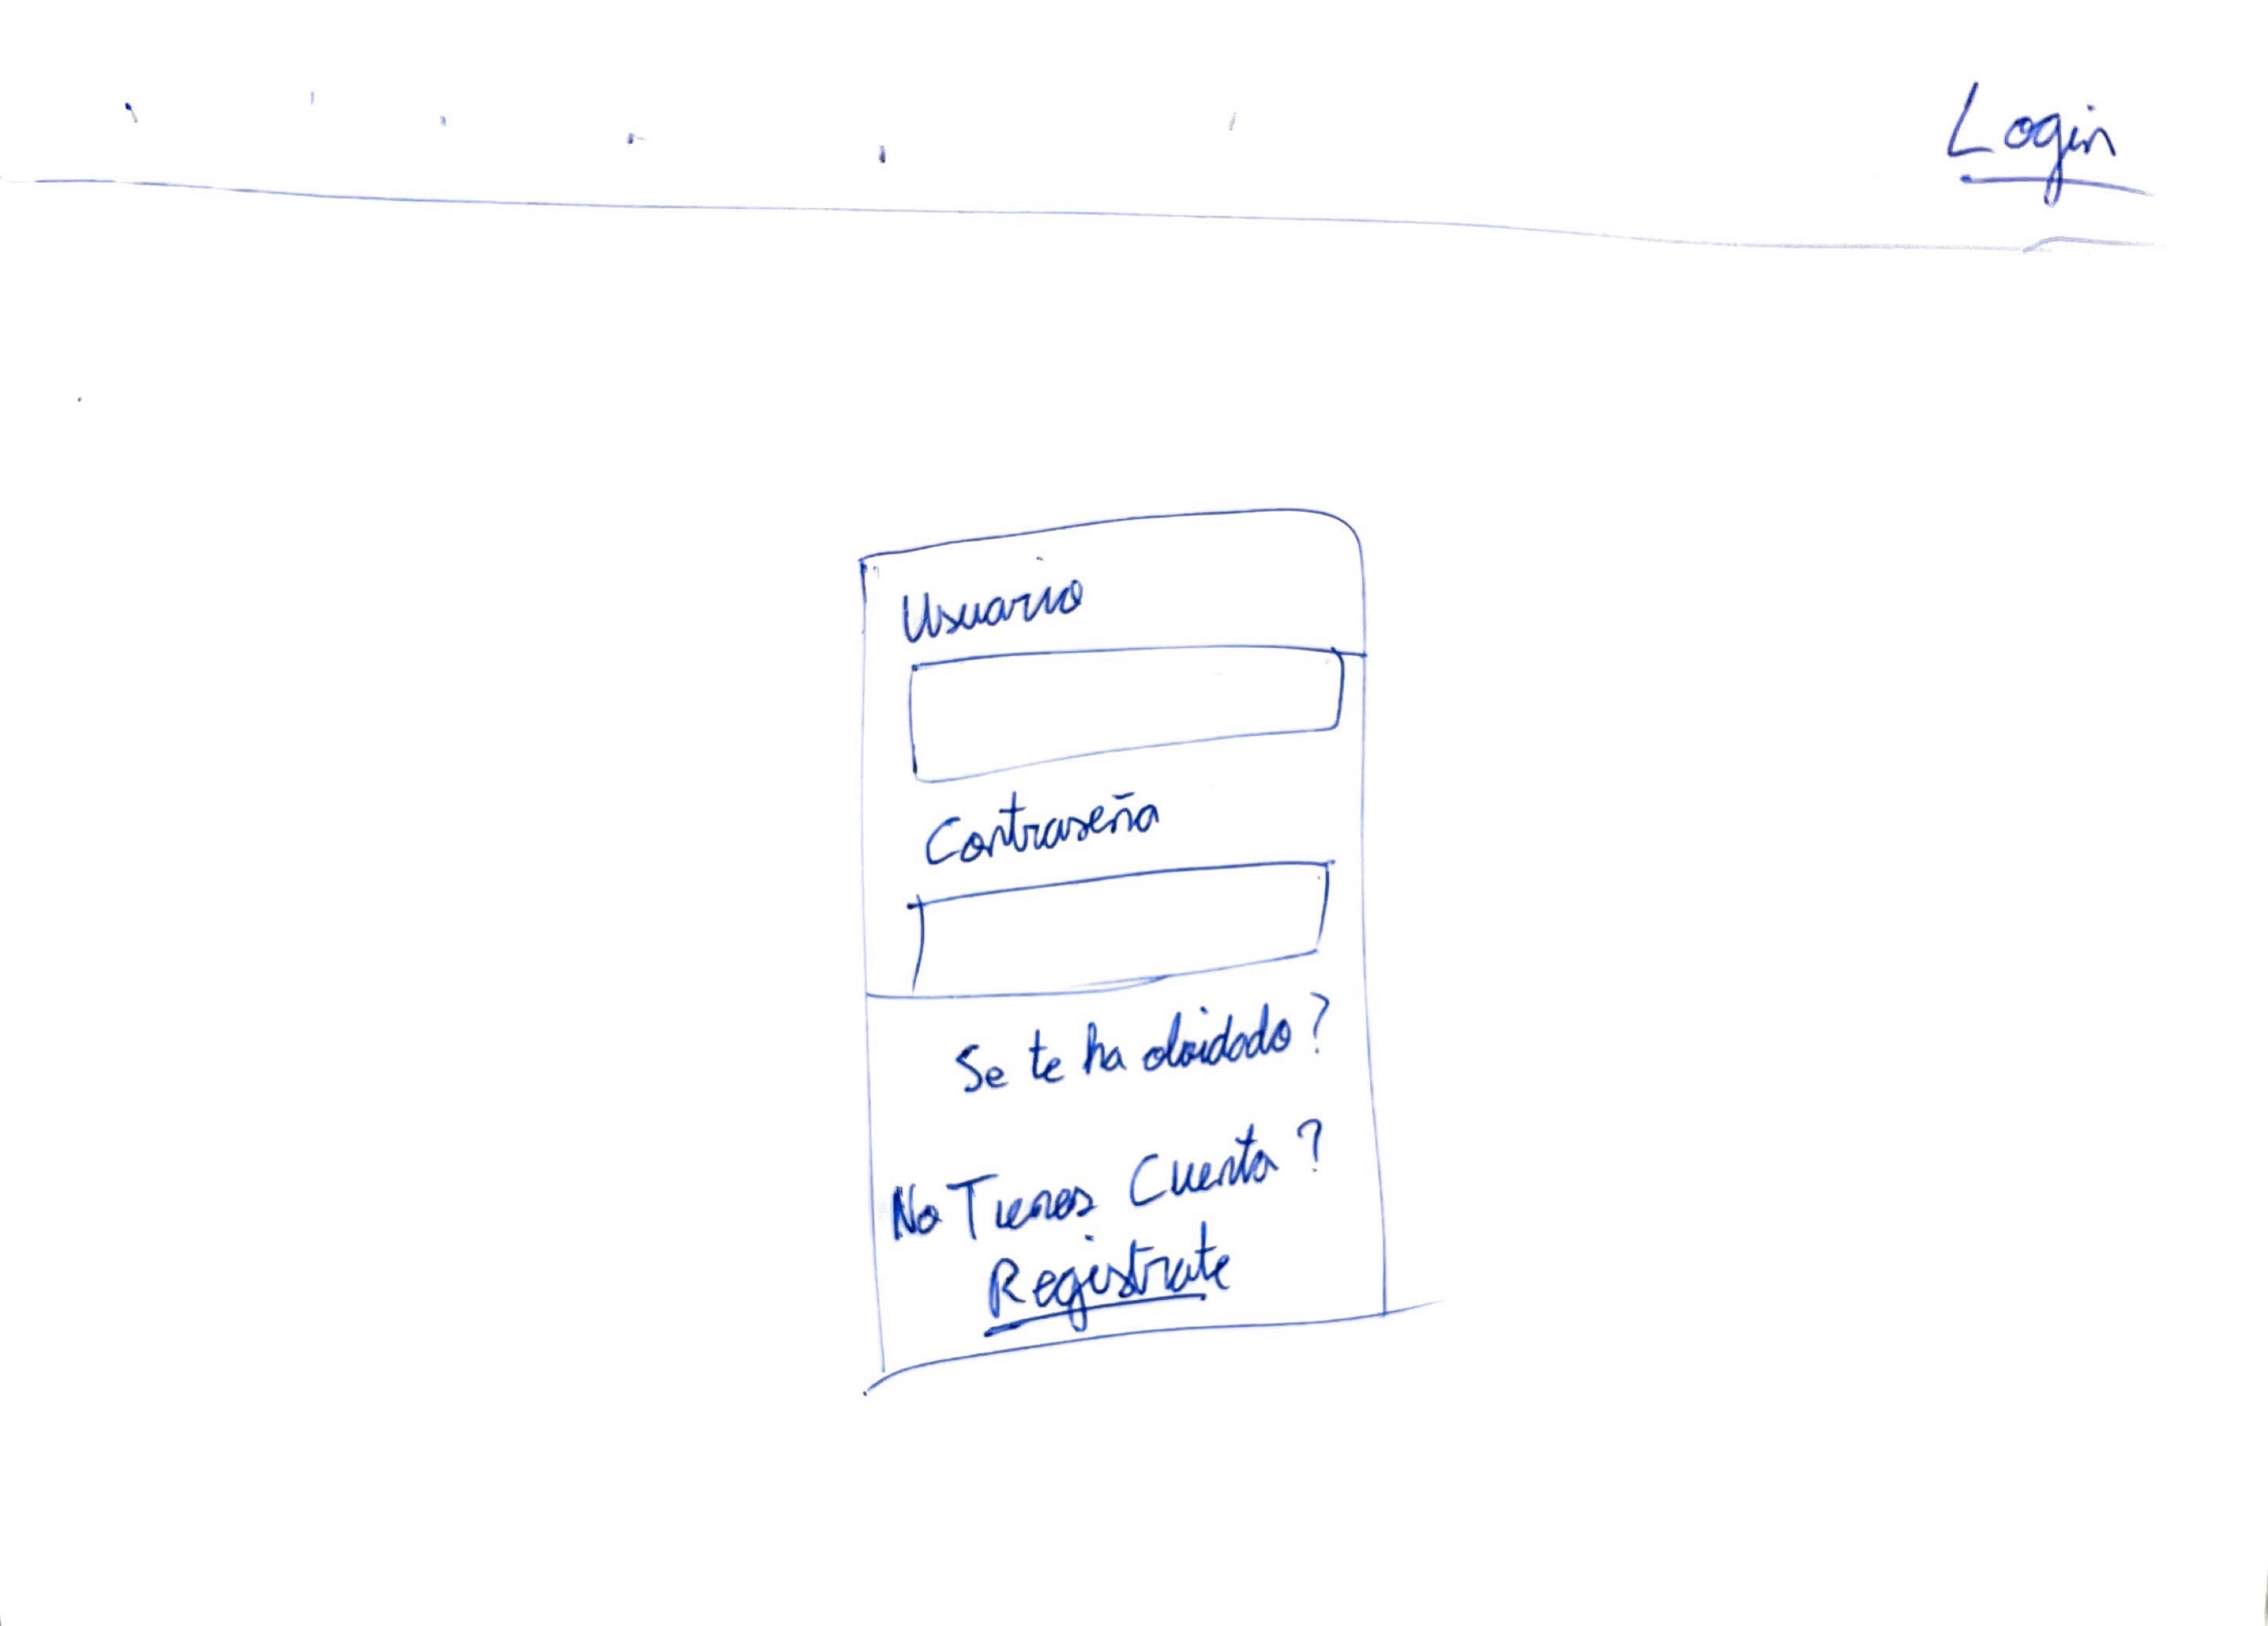 Login
Usuario
Contraseña
Se te ha olvidado?
No Tienes Cuenta?
Registrate